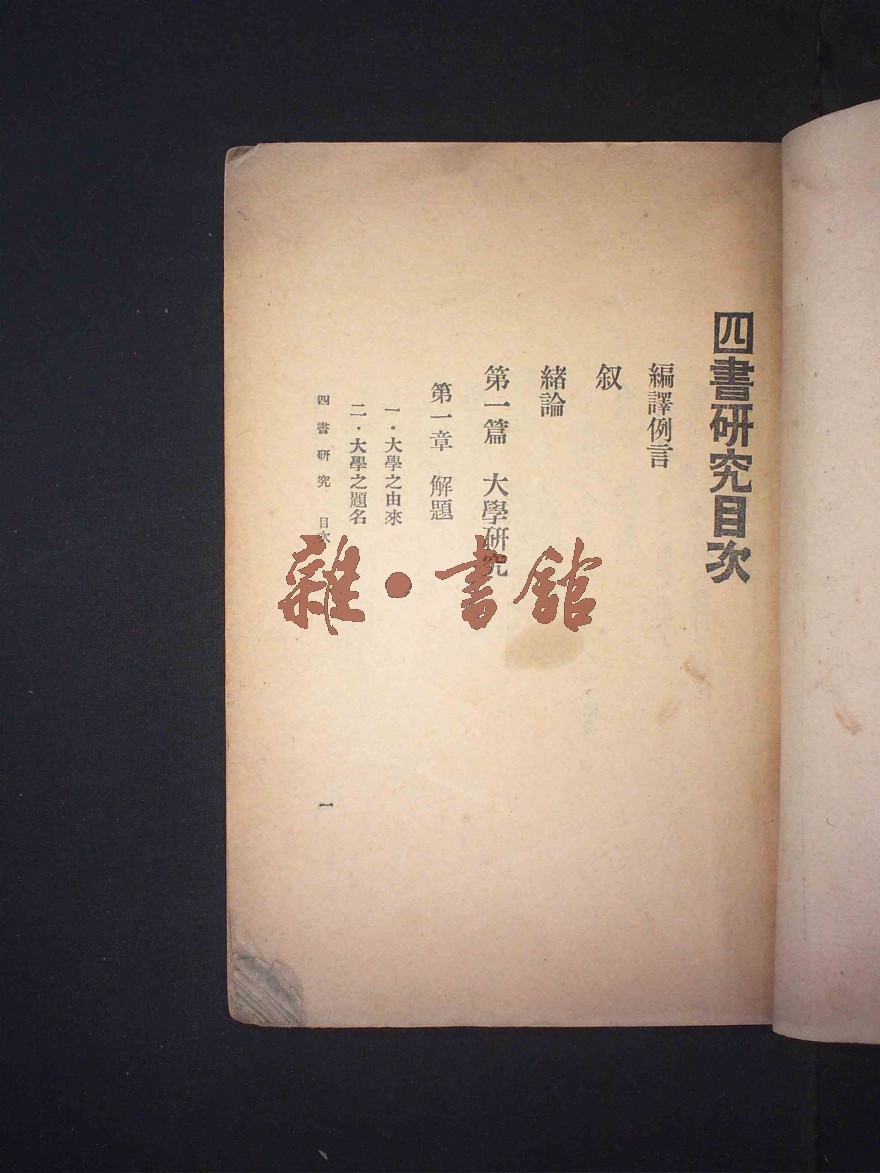 四書研究目次
編譯例言
叙
緒論
第一篇　大學研究
第一章　解題
一．大學之由來
二．大學之題名
四書研究　目次
一
雜・書館